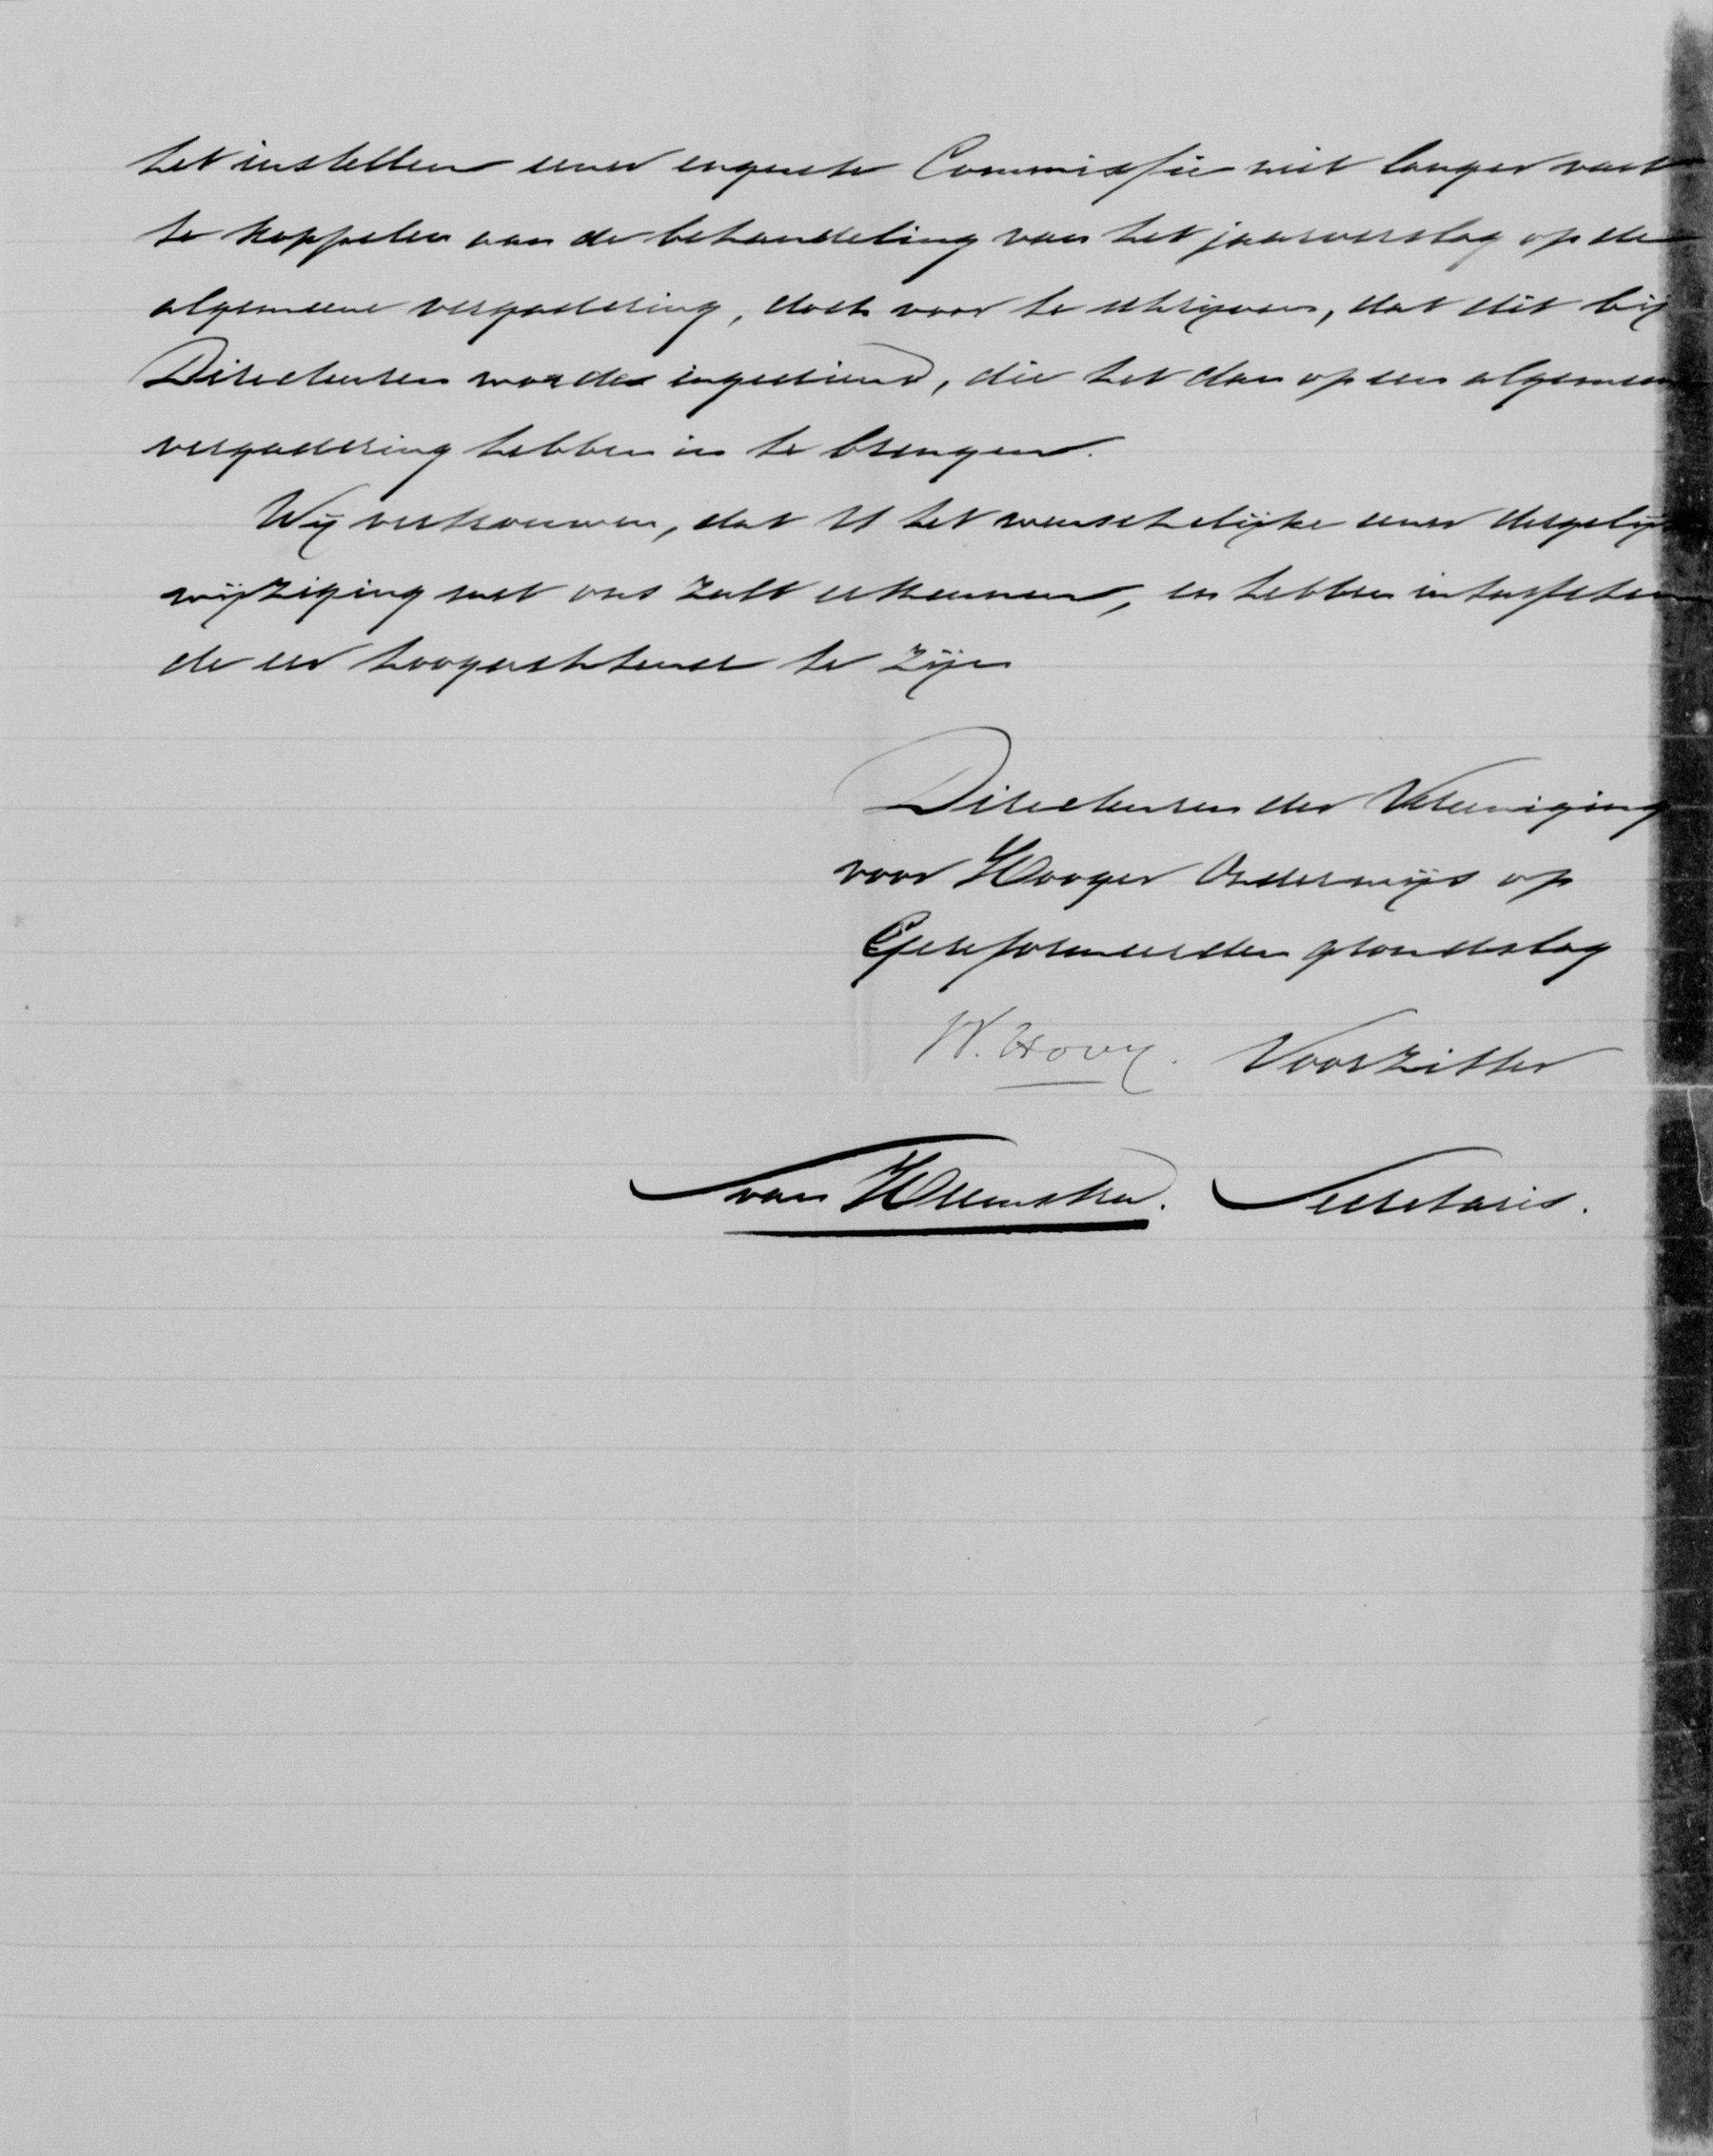 het instellen eener enquete Commissie niet langer vast
te koppelen aan de behandeling van het jaarverslag op de
algemeene vergadering, doch voor te schrijven, dat dit bij
Directeuren worde ingediend, die het dan op een algemeene
vergadering hebben in te brengen.
Wij vertrouwen, dat U het wenschelijke eener dergelijke
wijziging met ons zult erkennen, en hebben intusschen
de eer hoogachtend te zijn
Directeuren der Vereeniging
voor Hooger Onderwijs op
Gereformeerden grondslag
W. Hovy. Voorzitter
van Heemstra. Secretaris.